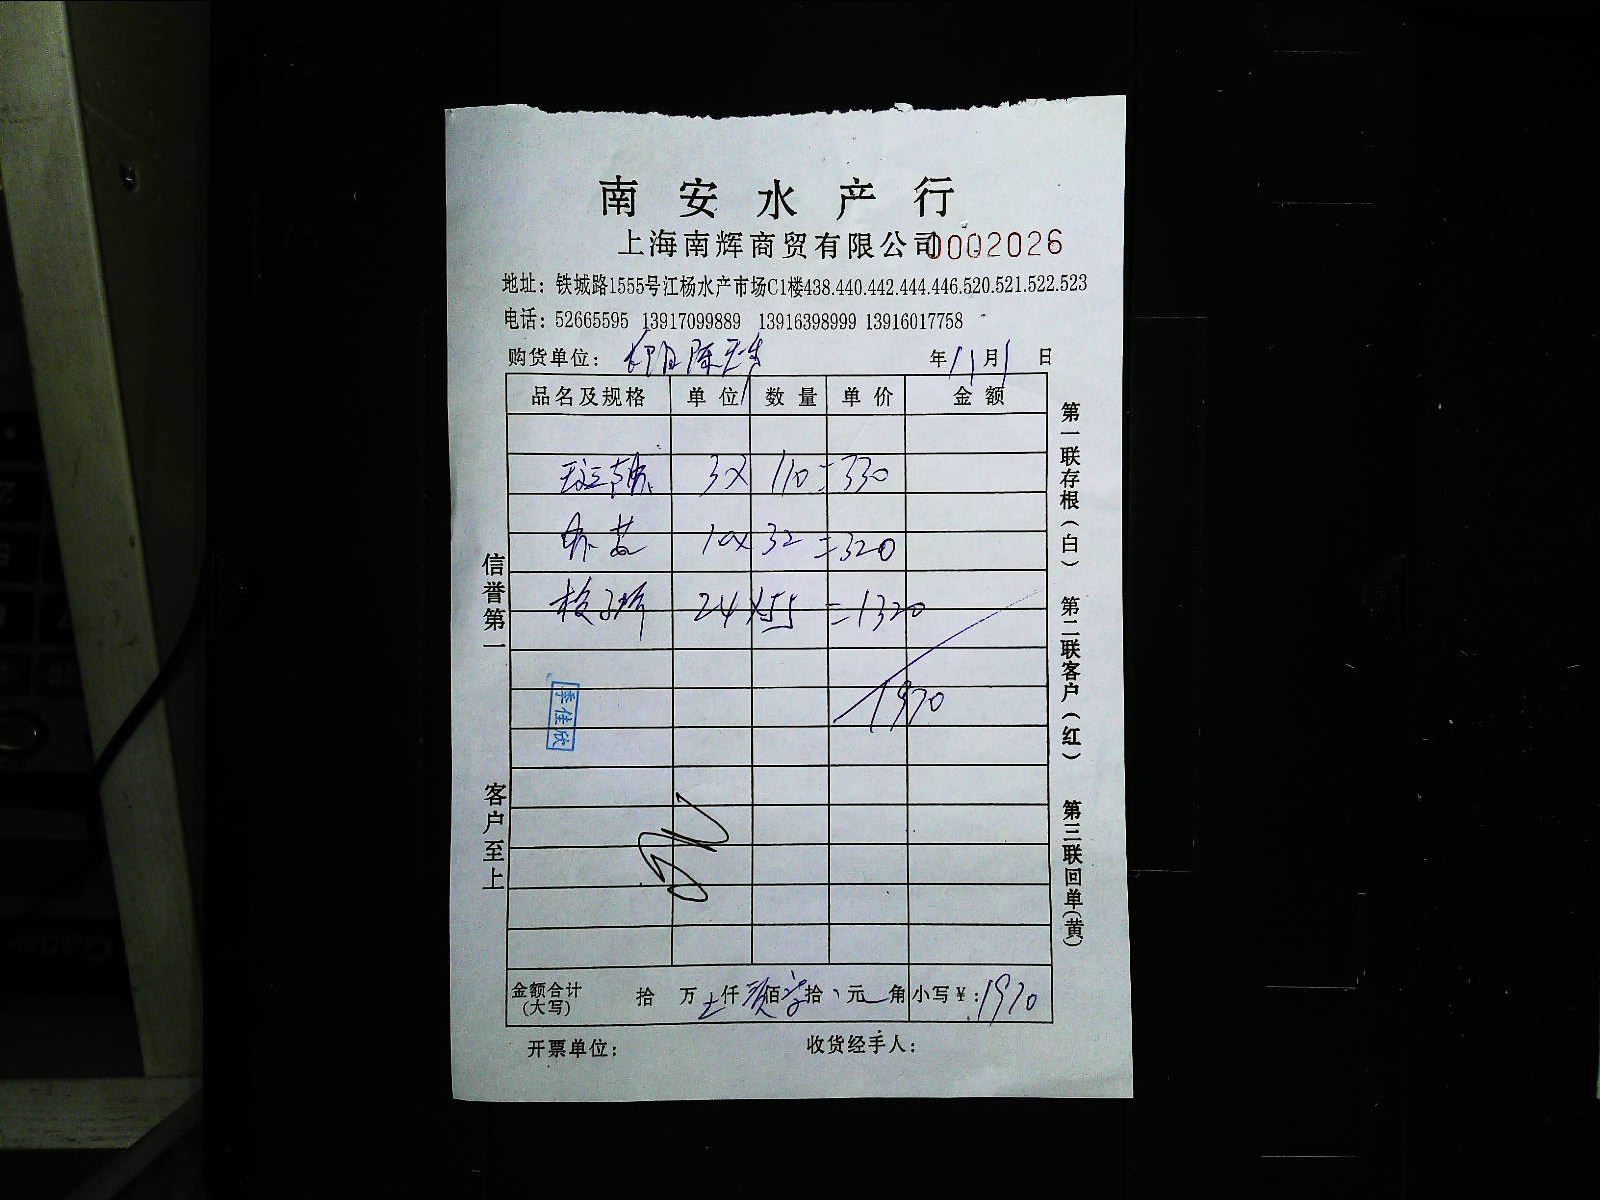 南安水产行
上海南辉商贸有限公司 0002026
地址：铁城路1555号江杨水产市场C1楼438.440.442.444.446.520.521.522.523
电话：52665595 13917099889 13916398999 13916017758
购货单位： 年11月1日
品名及规格 单位 数量 单价 金额
3× 110=330
10×32=320
24×55=1320
1970
季佳欣
金额合计(大写) 拾 万 仟 佰 拾 元 角 小写￥:1970
开票单位： 收货经手人：
信誉第一 客户至上
第一联存根(白) 第二联客户(红) 第三联回单(黄)